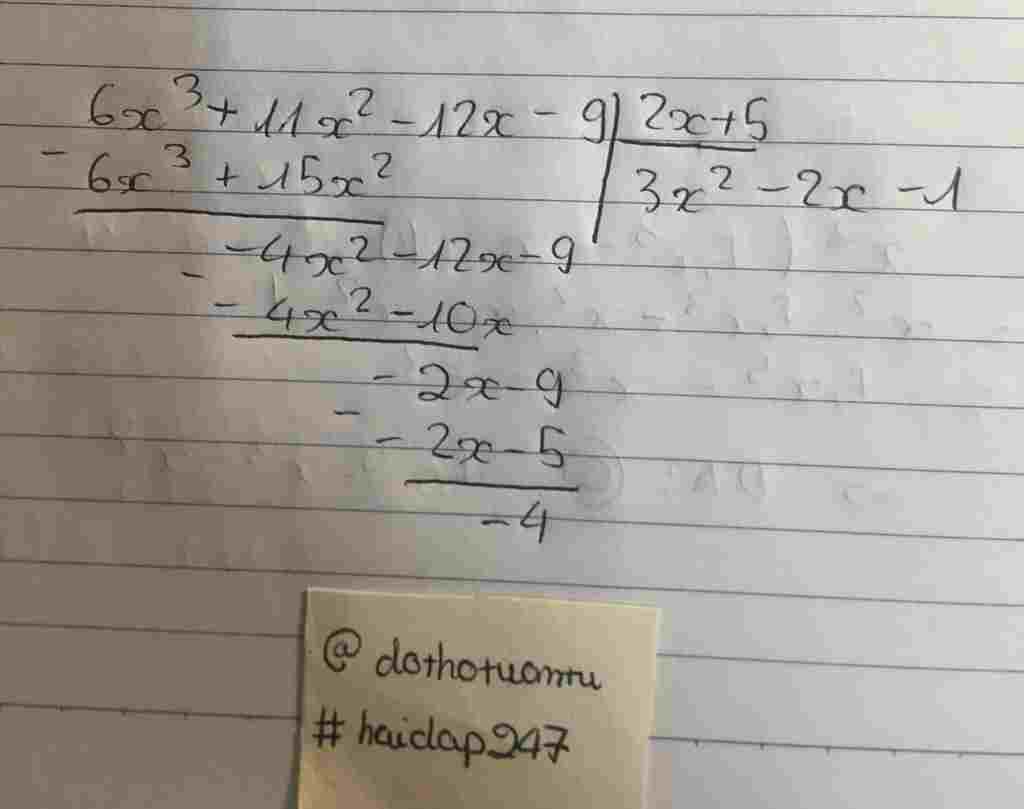 6x³ + 11x² - 12x - 9 | 2x + 5
- 6x³ + 15x² | 3x² - 2x - 1
- 4x² - 12x - 9
- - 4x² - 10x
- 2x - 9
- - 2x - 5
- 4
@ dothotuantu
# haidap247